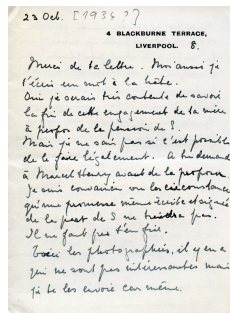 23 Oct. [1934?]
4 BLACKBURNE TERRACE,
LIVERPOOL. 8.
Merci de ta lettre. Moi aussi je
t'écris un mot à la hâte.
Oui je serais très contente de savoir
la fin de cette engagement de ta mère
à propos de la pension de S.
Mais je ne sais pas si c'est possible
de la faire légalement. A tu demandé
à Marcel Henry avant de la proposer
Je suis convaincu vu les circonstances
qu'une promesse même écrite et signée
de la part de S ne tiendra pas.
Il ne faut pas t'en fier.
Voici les photographies, il y en a
qui ne sont pas intéressantes mais
je te les envoie car même.